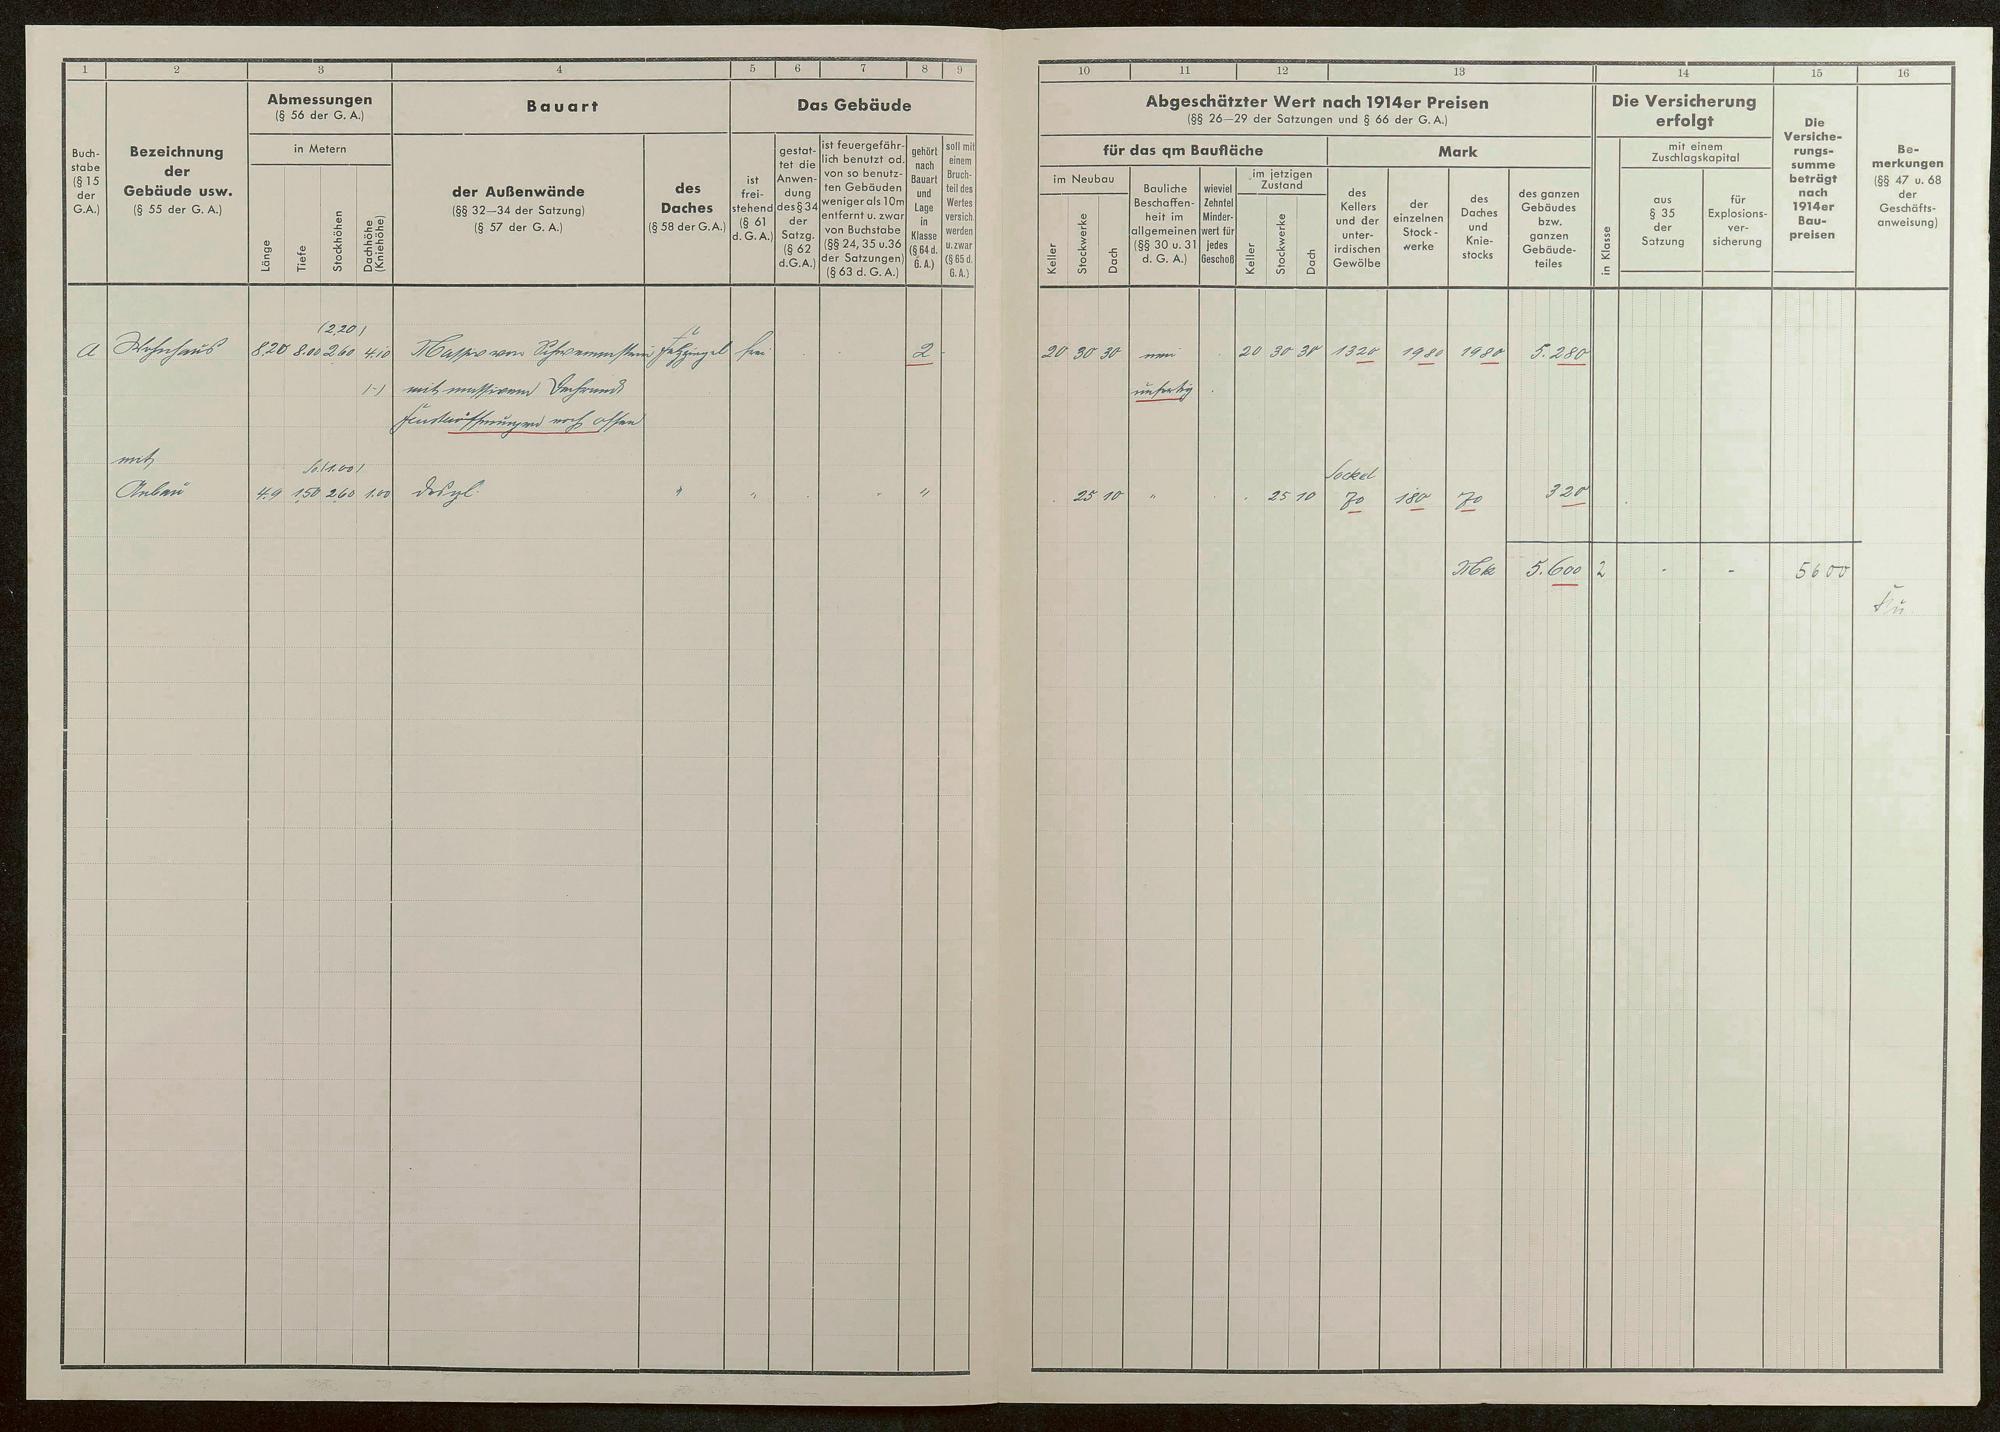 1 2 3 4 5 6 7 8 9
Buch-
stabe
(§ 15
der
G.A.)
Bezeichnung
der
Gebäude usw.
(§ 55 der G. A.)
Abmessungen
(§ 56 der G. A.)
in Metern
Länge
Tiefe
Stockhöhen
Dachhöhe
(Kniehöhe)
Bauart
der Außenwände
(§§ 32—34 der Satzung)
(§ 57 der G. A.)
des
Daches
(§ 58 der G. A.)
Das Gebäude
ist
frei-
stehend
(§ 61
d. G. A.)
gestat-
tet die
Anwen-
dung
des § 34
der
Satzg.
(§ 62
d.G.A.)
ist feuergefähr-
lich benutzt od.
von so benutz-
ten Gebäuden
weniger als 10m
entfernt u. zwar
von Buchstabe
(§§ 24, 35 u. 36
der Satzungen)
(§ 63 d. G. A.)
gehört
nach
Bauart
und
Lage
in
Klasse
(§ 64 d.
G. A.)
soll mit
einem
Bruch-
teil des
Wertes
versich.
werden
u. zwar
(§ 65 d.
G. A.)
(2.20)
A Wohnhaus 8.20 8.00 2.60 4.10 Massiv von Schwemmstein Falzziegel frei 2
(-) mit massivem
Fensteröffnungen noch offen
mit
So. (1.00)
Anbau 4.9 1.50 2.60 1.00 desgl. " " "
10 11 12 13 14 15 16
Abgeschätzter Wert nach 1914er Preisen
(§§ 26—29 der Satzungen und § 66 der G. A.)
für das qm Baufläche
Mark
im Neubau
Keller
Stockwerke
Dach
Bauliche
Beschaffen-
heit im
allgemeinen
(§§ 30 u. 31
d. G. A.)
wieviel
Zehntel
Minder-
wert für
jedes
Geschoß
im jetzigen
Zustand
Keller
Stockwerke
Dach
des
Kellers
und der
unter-
irdischen
Gewölbe
der
einzelnen
Stock-
werke
des
Daches
und
Knie-
stocks
des ganzen
Gebäudes
bzw.
ganzen
Gebäude-
teiles
Die Versicherung
erfolgt
in Klasse
mit einem
Zuschlagskapital
aus
§ 35
der
Satzung
für
Explosions-
ver-
sicherung
Die
Versiche-
rungs-
summe
beträgt
nach
1914er
Bau-
preisen
Be-
merkungen
(§§ 47 u. 68
der
Geschäfts-
anweisung)
20 30 30 neu 20 30 30 1320 1980 1980 5.280
unfertig
Sockel
25 10 " 25 10 70 180 70 320
Mk 5.600 2 - - 5600